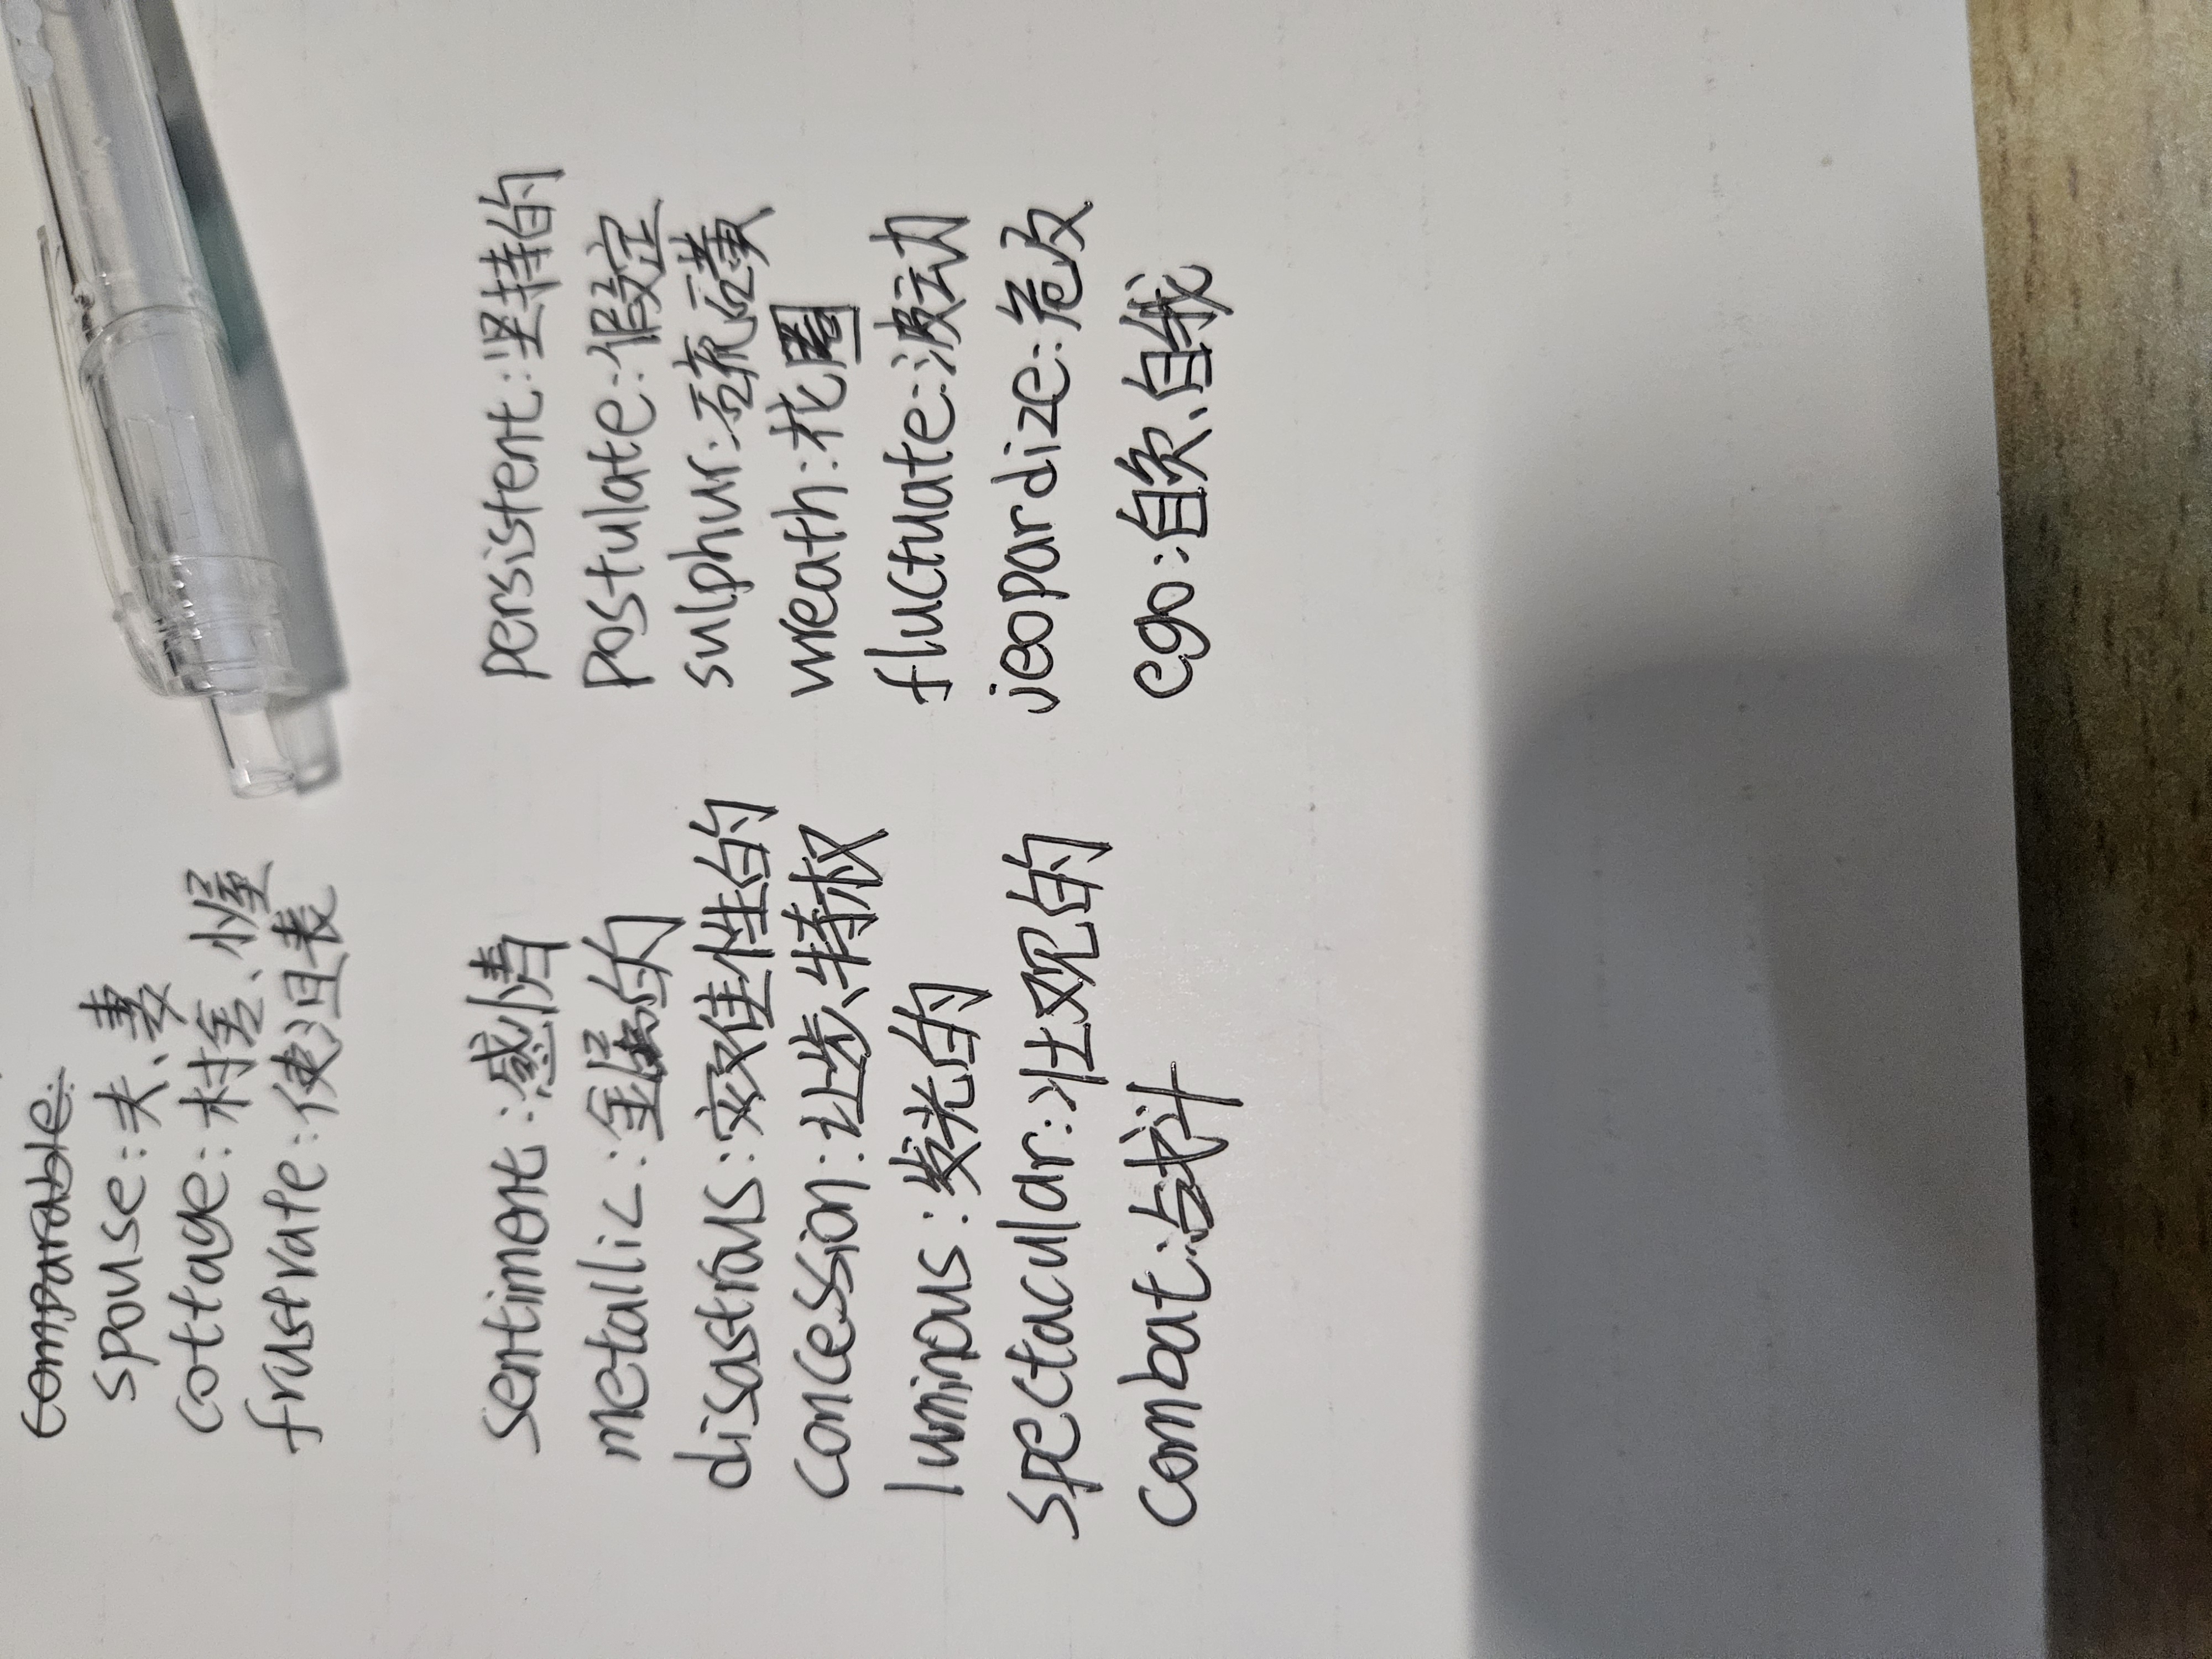 comparable:
spouse:夫、妻
cottage:村舍、小屋
frustrate:使沮丧
sentiment:感情
metallic:金属的
disastrous:灾难性的
concession:让步、特权
luminous:发光的
spectacular:壮观的
combat:战斗
persistent:坚持的
postulate:假定
sulphur:硫磺
wreath:花圈
fluctuate:波动
jeopardize:危及
ego:自负、自我